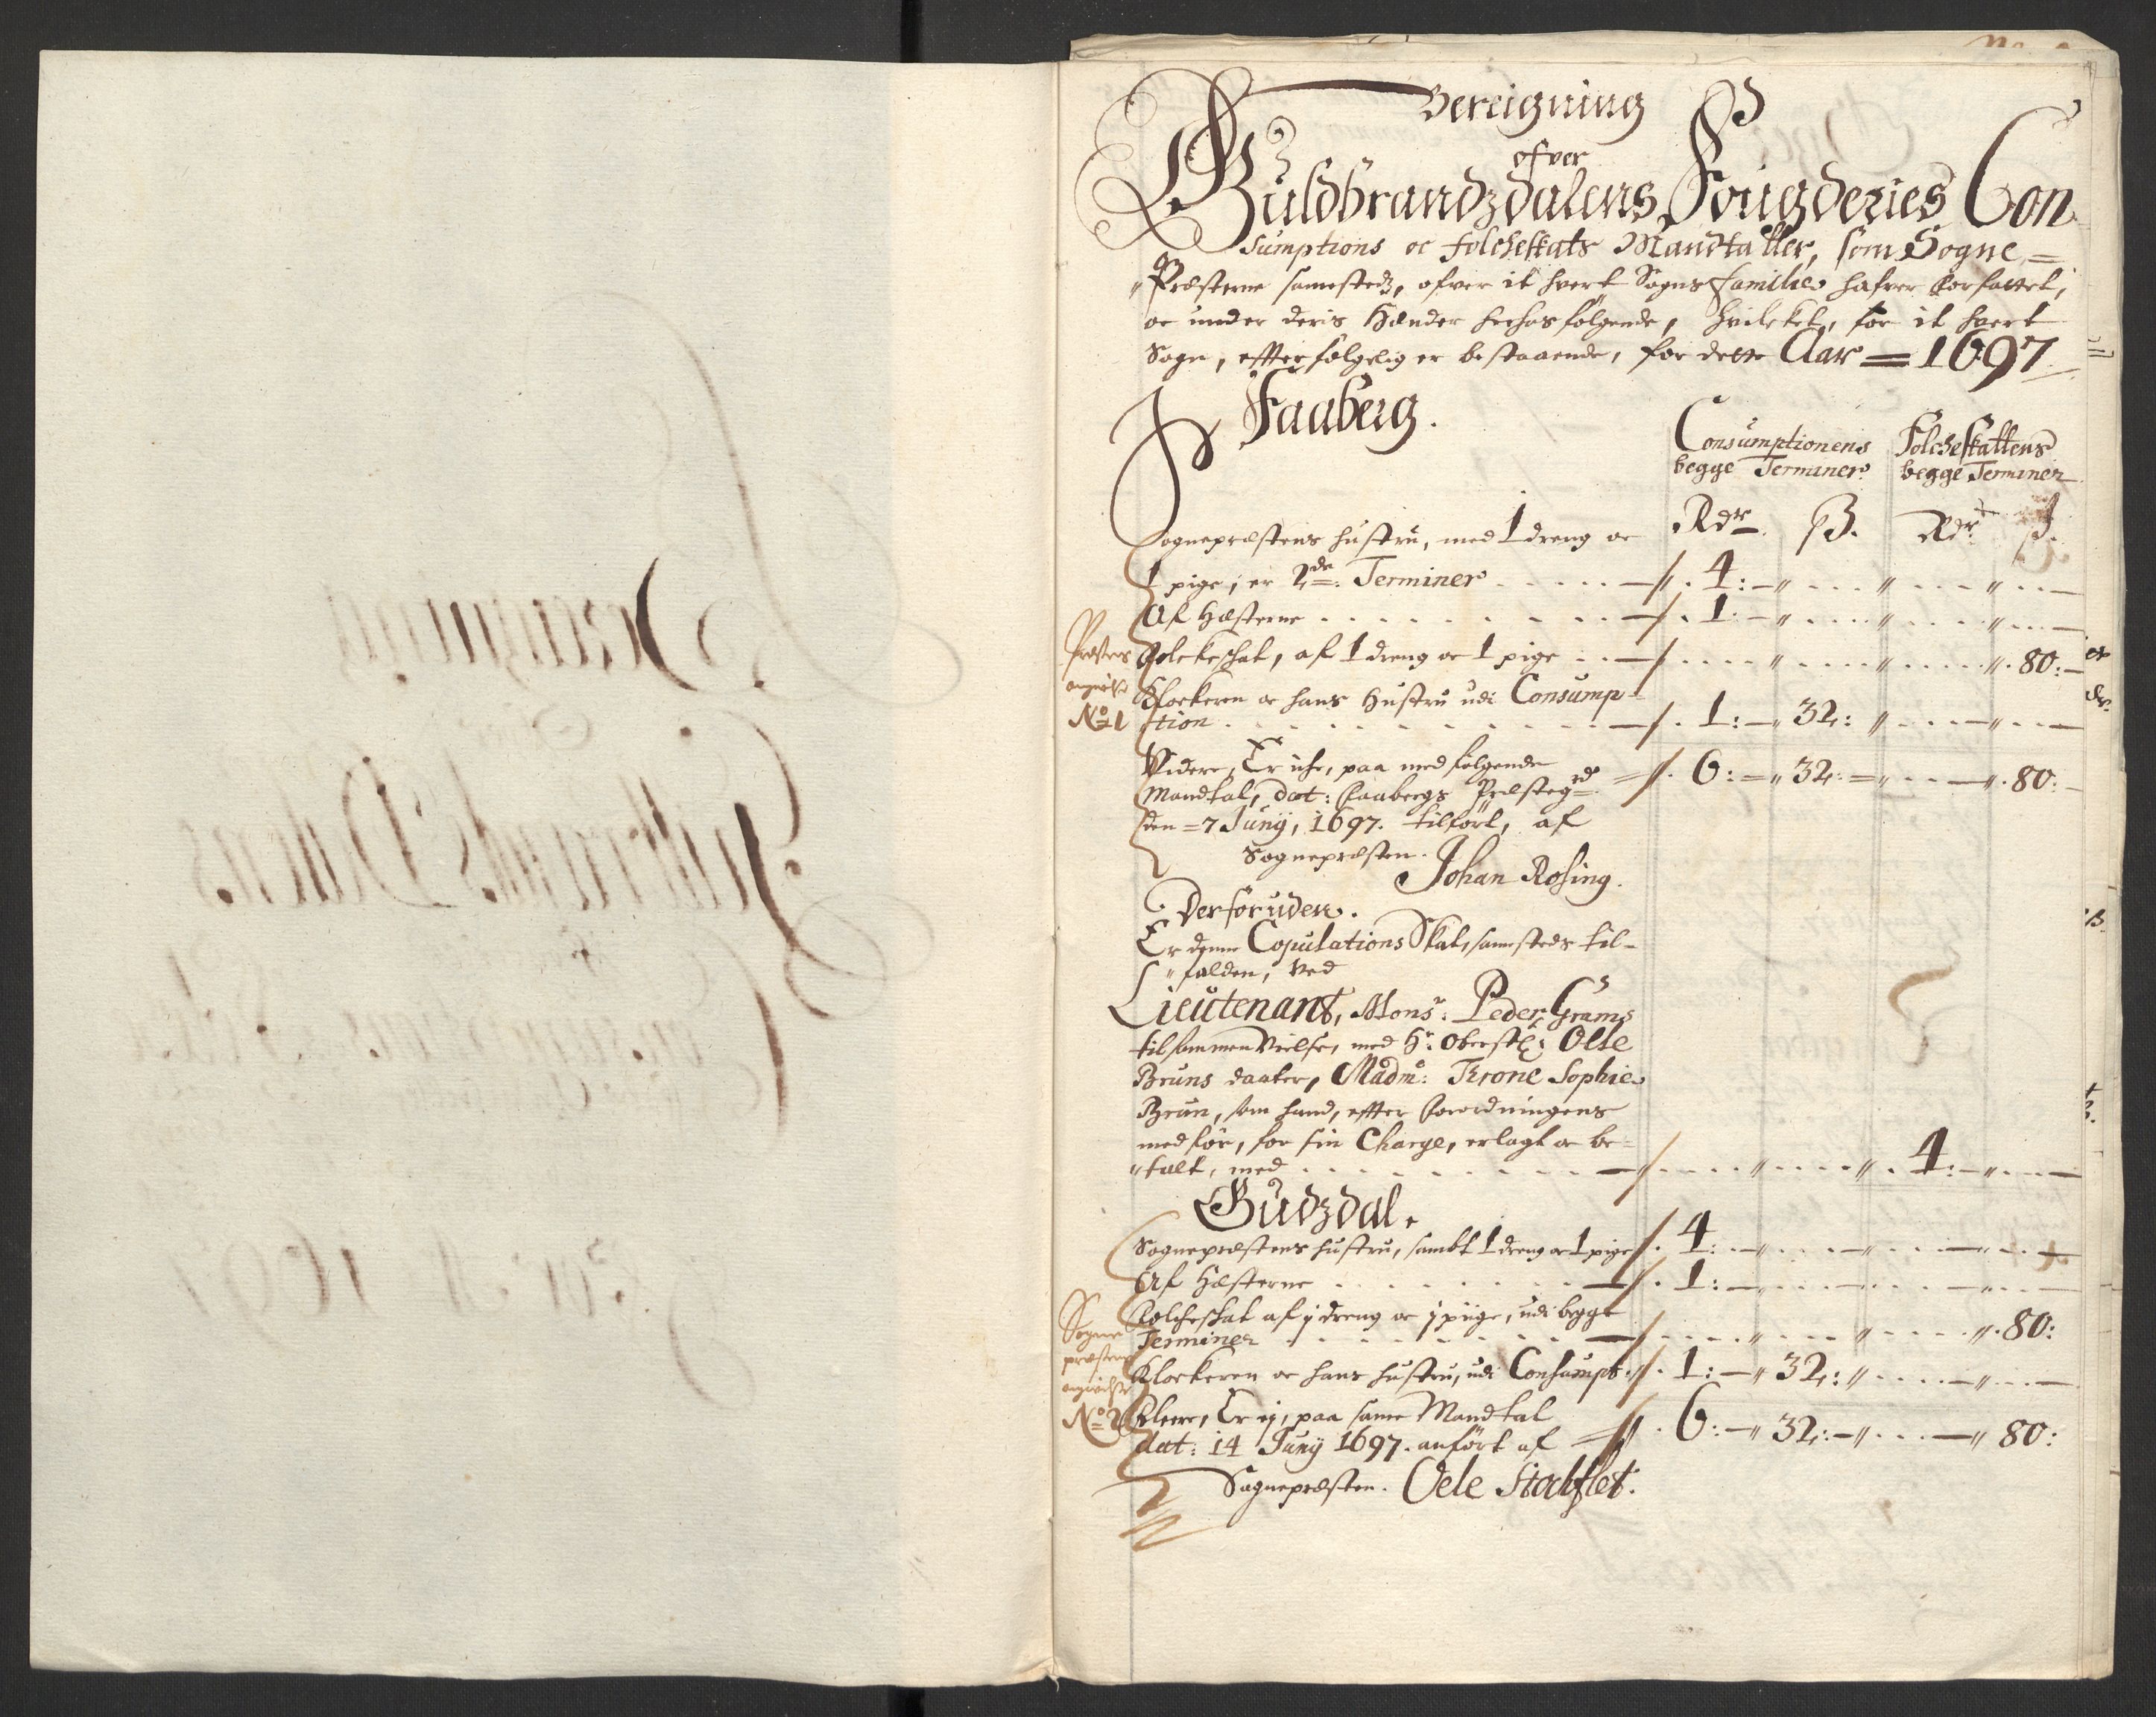 Bereigning
ofver
Guldbrandzdalens Fougderies Con
sumptions oc folcheskats Mandtaller, som Sogne =
Præsterne samestedz, ofver it hvert Sogns Familie hafver forfattet,
oc under deris Hænder herhos følgende, hvilcket, for it hvert
Sogn, effterfølgelig er bestaaende, for dette Aar = 1697
Faaberg.
Consumptionens begge Terminer
Folcheskattens begge Terminer
Rdr ß. Rdr ß.
Sognepræstens hustru, med 1 dreng oc
1 pige, er 2de Terminer 4:
Af Hæsterne 1:
Folcheskat, af 1 dreng oc 1 pige 80:
Præstens
No 1
Klockeren oc hans Hustru udi Consump-
tion 1: 32:
Videre, Er iche, paa medfølgende 6: 32: 80:
Mandtal, dat: Faabergs Præsteg:
den 7 Junij, 1697. tilført, af
Sognepræsten.
Johan Rosing.
Derforuden.
Er denne Copulations Skat, samesteds til-
falden, Ved
Lieutenant, Mons: Peder Grams
tilsammen Vielse, med Hr: Oberstl: Olle
Bruns daater, Madm: Trone Sophie
Brun, som hand, effter Forordningens
medfør, for sin Charge, erlagt oc be-
talt, med 4:
Gudzdal.
Sognepræstens hustru, sambt 1 dreng oc 1 pige 4:
Af Hæsterne 1:
Folcheskat af j dreng oc j piige, udi begge
Terminer 80:
Sogne
præstens
No 2
Klockeren oc hans hustru, udi Consumpt. 1: 32:
Fleere, Er ej, paa same Mandtal
dat: 14 Junij 1697. anført af 6: 32: 80:
Sognepræsten. Oele Stabflet.